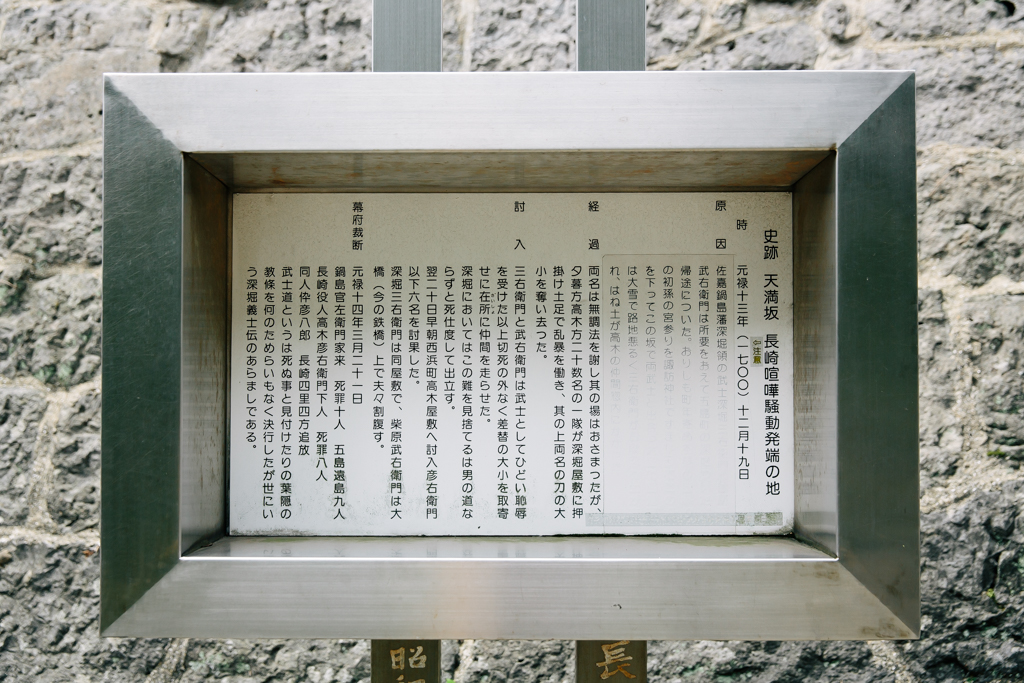 史跡 天満坂 長崎喧嘩騒動発端の地
注意
時 元禄十三年(一七〇〇)十二月十九日
原因 佐嘉鍋島藩深堀領の武士
武右衛門は所要を
帰途についた。
の初孫の宮参りを諏訪神社
を下ってこの坂で両前
は大雪で路地悪る
れ、はね土が高木の仲間
経過 両名は無調法を謝し其の場はおさまったが、
夕暮方高木方二十数名の一隊が深堀屋敷に押
掛け土足で乱暴を働き、其の上両名の刀の大
小を奪い去った。
討入 三右衛門と武右衛門は武士としてひどい恥辱
を受けた以上切死の外なく差替の大小を取寄
せに在所に仲間を走らせた。
深堀においてはこの難を見捨てるは男の道な
らずと死仕度して出立す。
翌二十日早朝西浜町高木屋敷へ討入彦右衛門
以下六名を討果した。
深堀三右衛門は同屋敷で、柴原武右衛門は大
橋(今の鉄橋)上で夫々割腹す。
幕府裁断 元禄十四年三月二十一日
鍋島官左衛門家来 死罪十人 五島遠島九人
長崎役人高木彦右衛門下人 死罪八人
同人倅彦八郎 長崎四里四方追放
武士道というは死ぬ事と見付けたりの葉隠の
教條を何のためらいもなく決行したが世にい
う深堀義士伝のあらましである。
長
昭